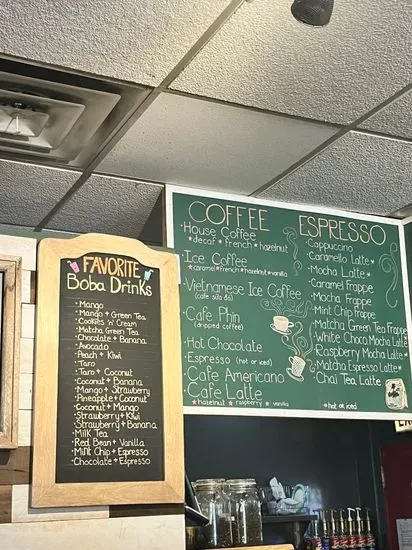 FAVORITE
Boba Drinks
• Mango
• Mango + Green Tea
• Cookies 'n' Cream
• Matcha Green Tea
• Chocolate + Banana
• Avocado
• Peach + Kiwi
• Taro
• Taro + Coconut
• Coconut + Banana
• Mango + Strawberry
• Pineapple + Coconut
• Coconut + Mango
• Strawberry + Kiwi
• Strawberry + Banana
• Milk Tea
• Red Bean + Vanilla
• Mint Chip + Espresso
• Chocolate + Espresso
COFFEE
• House Coffee
* decaf * french * hazelnut
• Ice Coffee
* caramel * French * hazelnut * vanilla
• Vietnamese Ice Coffee
(cafe sữa đá)
• Cafe Phin
(dripped coffee)
• Hot Chocolate
• Espresso (hot or iced)
• Cafe Americano
• Cafe Latte
* hazelnut * raspberry * vanilla
ESPRESSO
• Cappuccino
• Caramello Latte *
• Mocha Latte *
• Caramel Frappe
• Mocha Frappe
• Mint Chip Frappe
• Matcha Green Tea Frappe
• White Choco Mocha Latte *
• Raspberry Mocha Latte *
• Matcha Espresso Latte *
• Chai Tea Latte *
* hot or iced